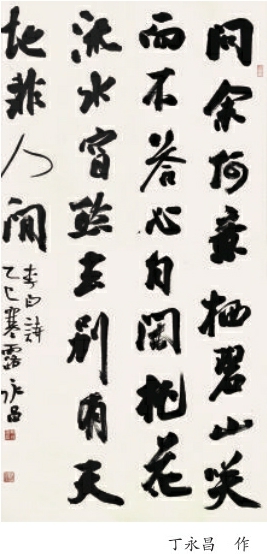 问余何意栖碧山笑
而不答心自闲桃花
流水窅然去别有天
地非人间
李白诗
乙巳寒露永昌
丁永昌 作